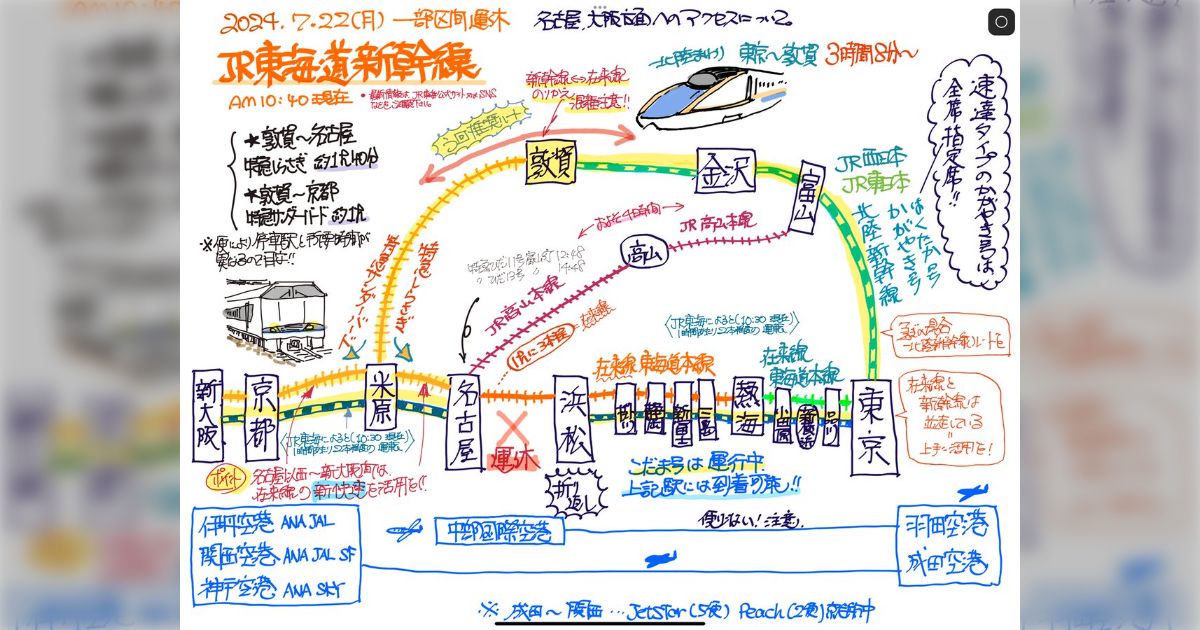 2024. 7.22(月) 一部区間運休
名古屋、大阪方面へのアクセスについて。
JR東海道新幹線
AM10:40現在
*最新情報は JR東海公式サイト又はSNS
などをご確認下さい。
北陸まわり 東京〜敦賀 3時間8分〜
新幹線⇔在来線
のりかえ
混雑注意!!
今回推奨ルート
速達タイプのかがやき号は
全席指定席!!
★敦賀〜名古屋
特急しらさぎ 約1h40分
★敦賀〜京都
特急サンダーバード 約1h
※便により停車駅と所要時間が
異なるので注意!!
敦賀
金沢
富山
JR西日本
JR東日本
はくたか号
かがやき号
北陸新幹線
およそ4時間
JR高山本線
高山
特急ひだ11号名古屋 12:48
〃 ひだ13号 〃 14:48
JR高山本線
特急しらさぎ
特急サンダーバード
1hに3本程
在来線
〈JR東海によると(10:30現在)
1時間あたり2本程度の運転〉
在来線 東海道本線
在来線
東海道本線
急ぎの場合
北陸新幹線ルートを
在来線と
新幹線は
並走している
上手に活用を!
新大阪
京都
米原
名古屋
浜松
掛川
静岡
新富士
三島
熱海
小田原
新横浜
品川
東京
運休
折り返し
〈JR東海によると(10:30現在)
1時間あたり2本程度の運転〉
ポイント
名古屋以西〜新大阪間では
在来線の新快速を活用を!!
こだま号は運行中
上記駅には到着可能!!
伊丹空港 ANA JAL
関西空港 ANA JAL SF
神戸空港 ANA SKY
中部国際空港
便少ない!注意。
羽田空港
成田空港
※ 成田〜関西…JetStar(5便) Peach(2便)就航中